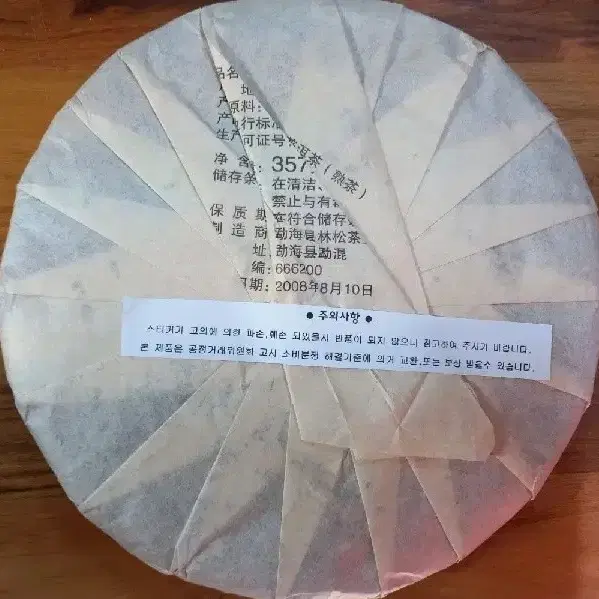 品名
地
原料:
产 行标准
生产 可证号
洱茶(熟茶)
净含 : 357
储存条 : 在清洁、
禁止与有
保质期 在符合储存条
制造商: 勐海县林松茶
址: 勐海县勐混
编: 666200
日期: 2008年8月10日
● 주의사항 ●
스티커가 고의에 의한 파손,훼손 되었을시 반품이 되지 않으니 참고하여 주시기 바랍니다.
본 제품은 공정거래위원회 고시 소비분쟁 해결기준에 의거 교환,또는 보상 받을수 있습니다.